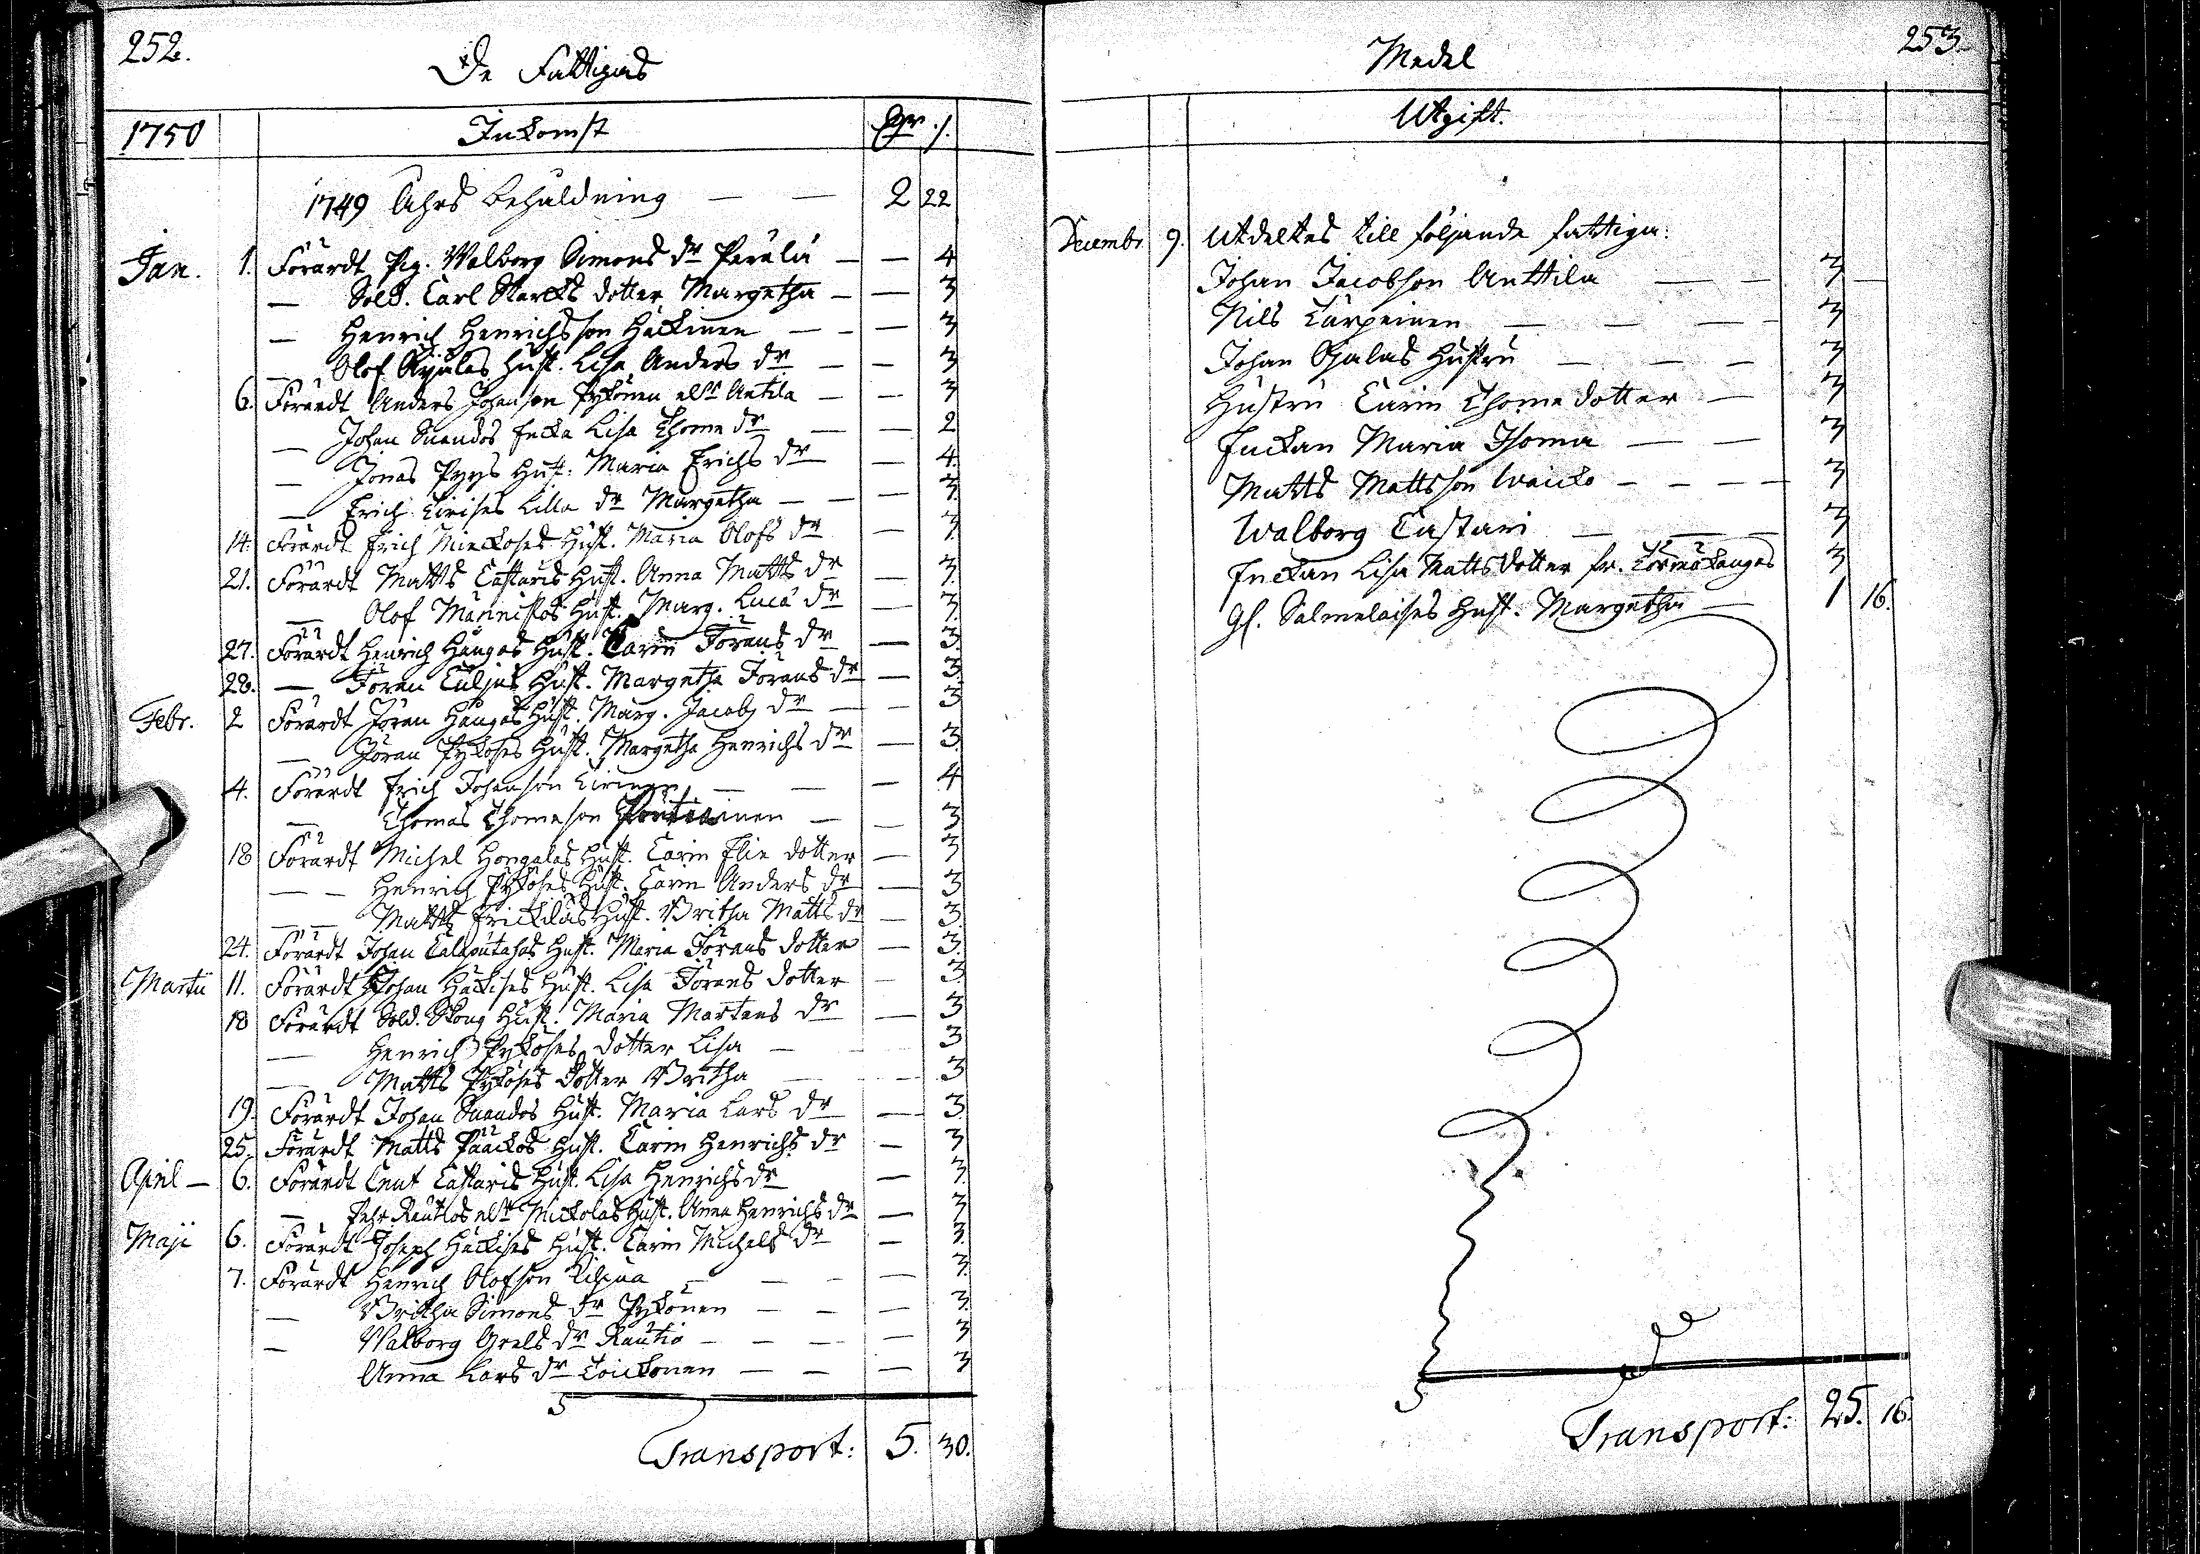 252.
De Fattigas
1750 Inkomst Dlr. /.
1749 Åhrs behåldning — — 2 22
Jan. 1. Förärdt Pig. Walborg Simons dr Perälä — — 4
— Sold. Carl Starcks dotter Margetha — — 3
— Henrich Henrichsson Häckinen — — — 3
— Olof hust. Lisa Anders dr — — 3
6. Förärdt Anders Johansson Pykönen elr Antila — — 3
— Johan Suandos Encka Lisa Thome dr — — 2
— Jonas Pyys Hust. Maria Erichs dr — 4
— Erich Lilla dr Margetha — — — 3
14. Förärdt Erich Hust. Maria Olofs dr — 3
21. Förärdt Matts Castaris Hust. Anna Matts dr — 3
— Olof Männistös Hust. Marg. Luca dr — 3
27. Förärdt Henrich Haugas Hust. Carin Jörans dr — 3
28. — Jöran Hust. Margetha Jörans dr — 3
Febr. 2 Förärdt Jöran Haugas Hust. Marg. Jacobs dr — — 3
— Jöran Pyköses Hust. Margetha Henrichs dr — 3
4. Förärdt Erich Johansson — — — 4
— Thomas Thomesson — — 3
18 Förärdt Michel Hongalas Hust. Carin Elie dotter — 3
— — Henrich Pyköses Hust. Carin Anders dr — 3
— — Matts Erickiläs Hust. Britha Matts dr — 3
24. Förärdt Johan Hust. Maria Jörans dotter — 3
Martii 11. Förärdt Johan Häckises Hust. Lisa Jörans dotter — 3
18 Förärdt Sold. Skoug Hust. Maria Mårtens dr — 3
— Henrich Pyköses dotter Lisa — 3
— Matts Pyköses dotter Britha — 3
19. Förärdt Johan Suandos Hust. Maria Lars dr — 3
25. Förärdt Matts Pääckös Hust. Carin Henrichs dr — 3
April — 6. Förärdt Cnut Castaris Hust. Lisa Henrichs dr — 3
— Pehr Rautios elr Mickolas Hust. Anna Henrichs dr — 3
Maji 6. Förärdt Joseph Häckises Hust. Carin Michels dr — 3
7. Förärdt Henrich Olofsson — — — — 3
— Britha Simons dr Pykönen — — — 3
— Walborg Grels dr Rautio — — — 3
Anna Lars dr — — — 3
Transport: 5. 30.
253.
Medel
Utgift.
Decembr. 9. Utdeltes till följande fattiga:
Johan Jacobsson Anttila — — 3 —
Nils Karpeinen — — — 3
Johan Ojalas Hustru — — — 3
Hustru Carin Thome dotter — 3
Enckan Maria Isoma — — 3
Matts Mattsson — — — — 3
Walborg Castari — — 3
Enckan Lisa Matts dotter fr. Törmäkangas 3
Gl. Salmelaises Hust. Margetha — 1 16.
Transport: 25. 16.